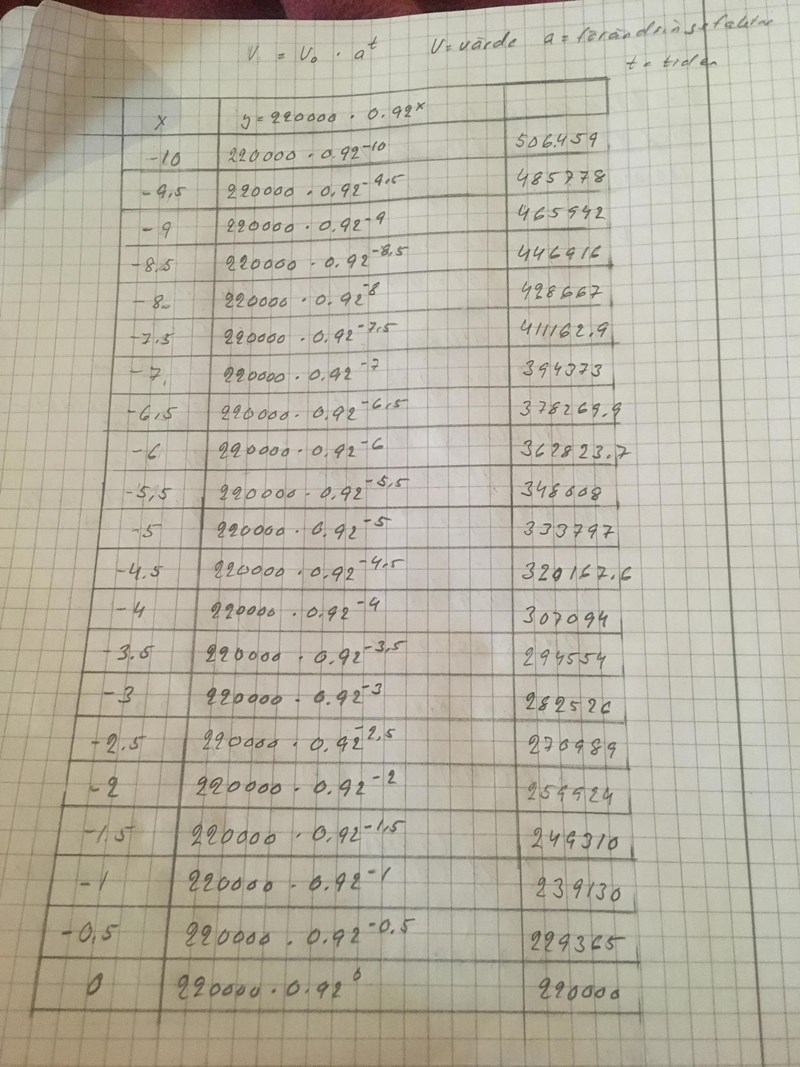 V = V₀ · aᵗ   V = värde   a = förändringsfaktor
t = tiden
x   y = 220000 · 0.92ˣ
-10   220000 · 0.92⁻¹⁰   506459
-9,5   220000 · 0.92⁻⁹·⁵   485778
-9   220000 · 0.92⁻⁹   465942
-8.5   220000 · 0.92⁻⁸·⁵   446916
-8   220000 · 0.92⁻⁸   428667
-7.5   220000 · 0.92⁻⁷·⁵   411162.9
-7   220000 · 0.92⁻⁷   394373
-6,5   220000 · 0.92⁻⁶·⁵   378269.9
-6   220000 · 0.92⁻⁶   362823.7
-5,5   220000 · 0.92⁻⁵·⁵   348008
-5   220000 · 0.92⁻⁵   333797
-4.5   220000 · 0.92⁻⁴·⁵   320167.6
-4   220000 · 0.92⁻⁴   307094
-3.5   220000 · 0.92⁻³·⁵   294554
-3   220000 · 0.92⁻³   282526
-2.5   220000 · 0.92⁻²·⁵   270989
-2   220000 · 0.92⁻²   259924
-1.5   220000 · 0.92⁻¹·⁵   249310
-1   220000 · 0.92⁻¹   239130
-0,5   220000 · 0.92⁻⁰·⁵   229365
0   220000 · 0.92⁰   220000